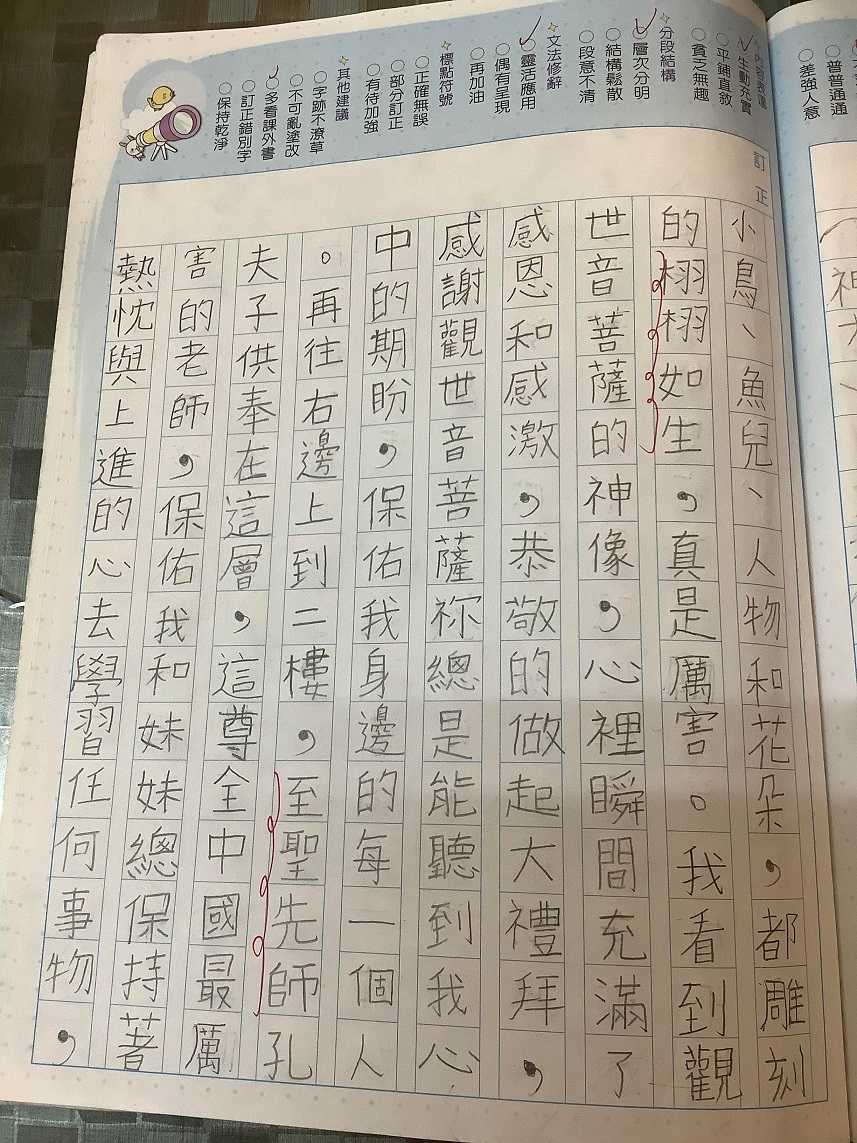 內容表達
生動充實
平鋪直敘
貧乏無趣
分段結構
層次分明
結構鬆散
段意不清
文法修辭
靈活應用
偶有呈現
再加油
標點符號
正確無誤
部分訂正
有待加強
其他建議
字跡不潦草
不可亂塗改
多看課外書
訂正錯別字
保持乾淨
普普通通
差強人意
訂正
小鳥、魚兒、人物和花朵，都雕刻
的栩栩如生，真是厲害。我看到觀
世音菩薩的神像，心裡瞬間充滿了
感恩和感激，恭敬的做起大禮拜，
感謝觀世音菩薩祢總是能聽到我心
中的期盼，保佑我身邊的每一個人
。再往右邊上到二樓，至聖先師孔
夫子供奉在這層，這尊全中國最厲
害的老師，保佑我和妹妹總保持著
熱忱與上進的心去學習任何事物，